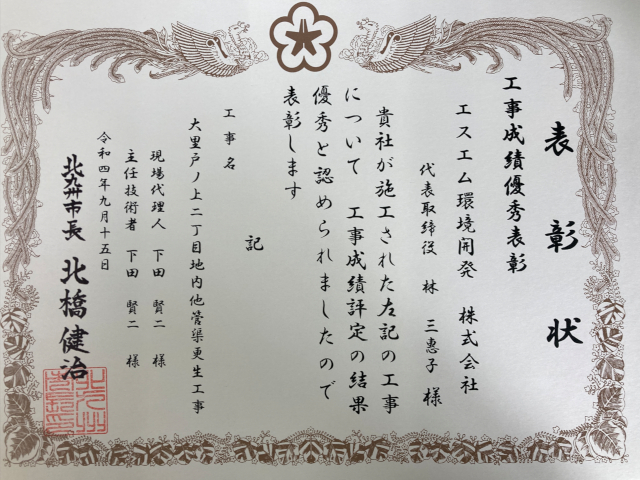 表彰状
工事成績優秀表彰
エスエム環境開発 株式会社
代表取締役 林 三惠子 様
貴社が施工された左記の工事
について 工事成績評定の結果
優秀と認められましたので
表彰します
記
工事名
大里戸ノ上二丁目地内他管渠更生工事
現場代理人 下田 賢二 様
主任技術者 下田 賢二 様
令和四年九月十五日
北九州市長 北橋健治